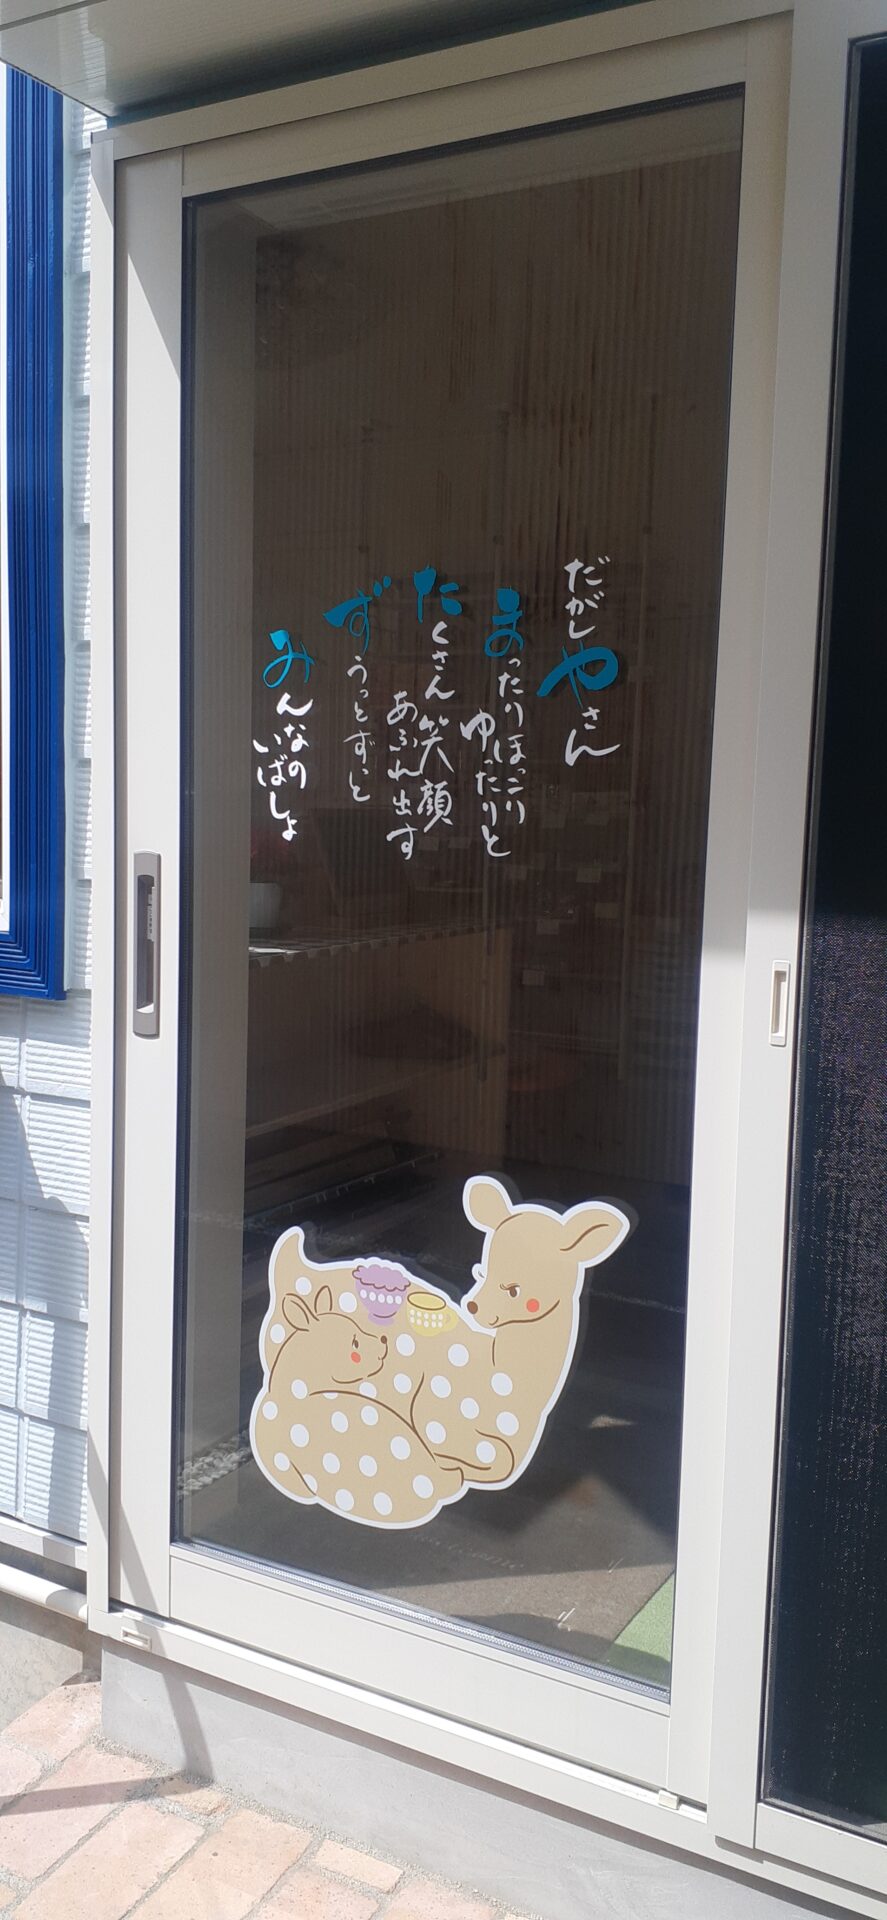 だがしやさん
まったりほっこり
ゆったりと
たくさん笑顔
あふれ出す
ずうっとずっと
みんなの
いばしょ